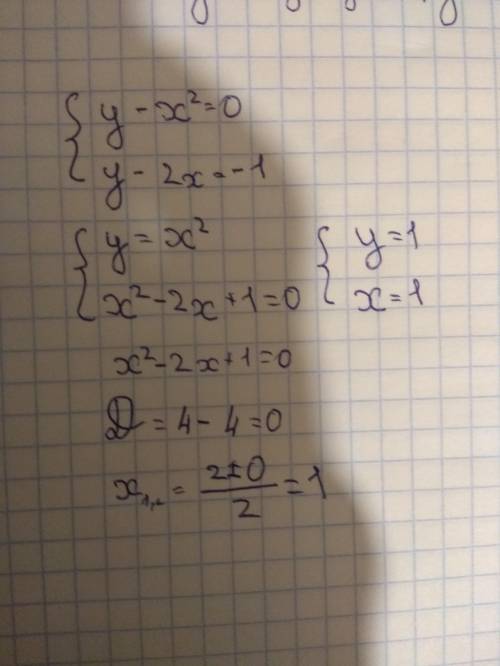 y - x² = 0
y - 2x = -1
y = x²
x² - 2x + 1 = 0
y = 1
x = 1
x² - 2x + 1 = 0
D = 4 - 4 = 0
x₁,₂ = (2±0)/2 = 1